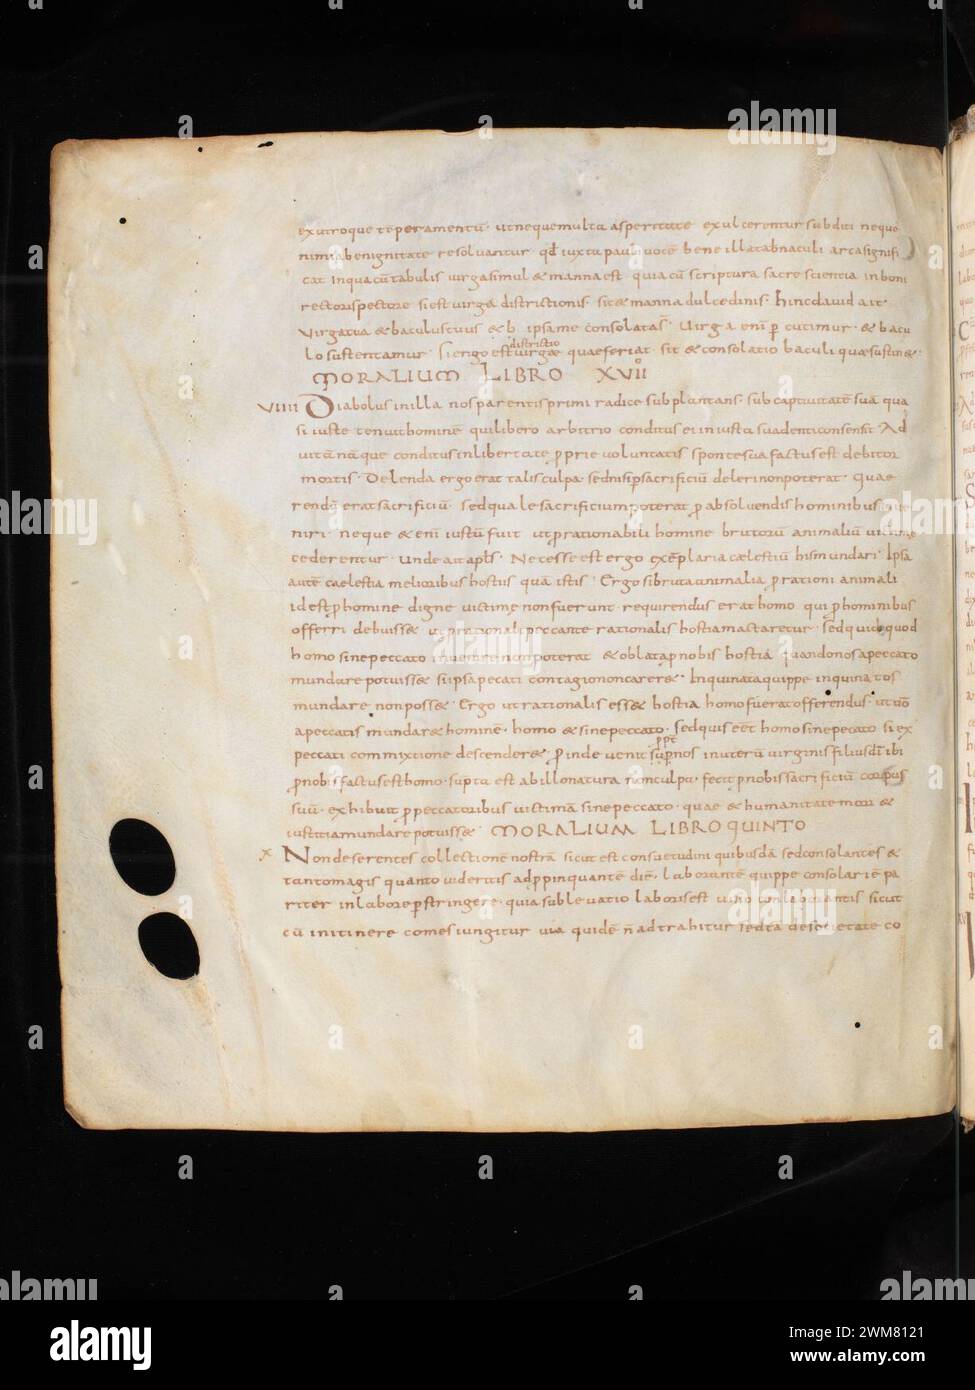 ex utroque teperamentū · ut neque multa asperitate exulcerentur subditi neque
nimia benignitate resolvantur · qđ iuxta pauli vocē bene illa tabnaculi arca signifi
cat · In qua cū tabulis virga simul & manna est · quia cū scriptura sacre scientia in boni
rectoris pectore si est virga districtionis · sit & manna dulcedinis · hinc david ait
Virga tua & baculus tuus ipsa me consolata s̄ · Virga enī percutimur · & bacu
lo sustentamur · Si ergo est districtio virgae quae feriat · sit & consolatio baculi quae sustin&
MORALIUM LIBRO XVII
VIIII Diabolus in illa nos parentis primi radice subplantans · sub captivitatē suā qua
si iuste tenuit hominē · qui libero arbitrio conditus ei iniusta suadenti consensit · Ad
vitā nāque conditus in libertate proprie voluntatis sponte sua factus est debitor
mortis · Delenda ergo erat talis culpa · sed nisi p sacrificiū deleri non poterat · Quae
rendū erat sacrificiū · sed quale sacrificium poterat p absolvendis hominibus inve
niri · neque & enī iustū fuit · ut p rationabili homine brutorū animaliū victime
cederentur · Unde ait apls · Necesse est ergo exēplaria caelestiū his mundari · Ipsa
autē caelestia melioribus hostiis quā istis · Ergo si bruta animalia p rationi animali
id est p homine digne victime non fuerunt · requirendus erat homo qui p hominibus
offerri debuiss& · ut p rationali peccante rationalis hostia mactaretur · sed quid quod
homo sine peccato inveniri non poterat · & oblata p nobis hostia quando nos a peccato
mundare potuiss& · si ipsa peccati contagio non carer& · Inquinata quippe inquinatos
mundare non poss& · Ergo ut rationalis ess& hostia homo fuerat offerendus · ut vō
a peccatis mundar& hominē · homo & sine peccato · sed quis eēt homo sine peccato si ex
peccati commixtione descender& · Proinde venit ppt nos in uterū virginis filius dī ibi
p nobis factus est homo · supta est ab illo natura non culpa · fecit p nobis sacrificiū corpus
suū · exhibuit p peccatoribus victimā sine peccato · quae & humanitate mori &
iustitia mundare potuiss& MORALIUM LIBRO QUINTO
X Non deserentes collectionē nostrā sicut est consuetudini quibusdā sed consolantes &
tanto magis quanto videritis adppinquantē diē · Laborantē quippe consolari ē pa
riter in labore pstringere · quia sublevatio laboris est visio conlaborantis sicut
cū in itinere comes iungitur via quidē ñ adtrabitur sed ta de societate co
alamy
Image ID: 2WM8121
www.alamy.com